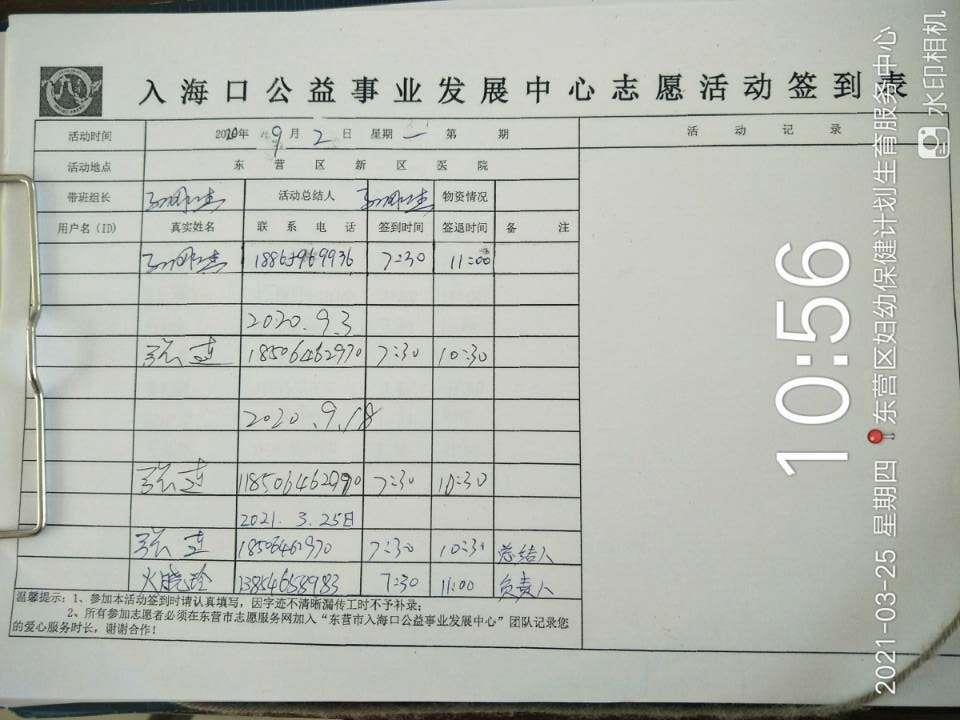 入海口公益事业发展中心志愿活动签到表
活动时间 2020年 9月 2日 星期一 第 期 活动记录
活动地点 东营区新区医院
带班组长 活动总结人 物资情况
用户名(ID) 真实姓名 联系电话 签到时间 签退时间 备注
7:30 11:00
2020.9.3
张莲 18506462970 7:30 10:30
2020.9.18
张莲 7:30 10:30
2021.3.25日
张莲 7:30 10:30 总结人
13854658983 7:30 11:00 负责人
温馨提示:1、参加本活动签到时请认真填写,因字迹不清晰漏传工时不予补录;
2、所有参加志愿者必须在东营市志愿服务网加入“东营市入海口公益事业发展中心”团队记录您
的爱心服务时长,谢谢合作!
10:56
2021-03-25 星期四 东营区妇幼保健计划生育服务中心
水印相机